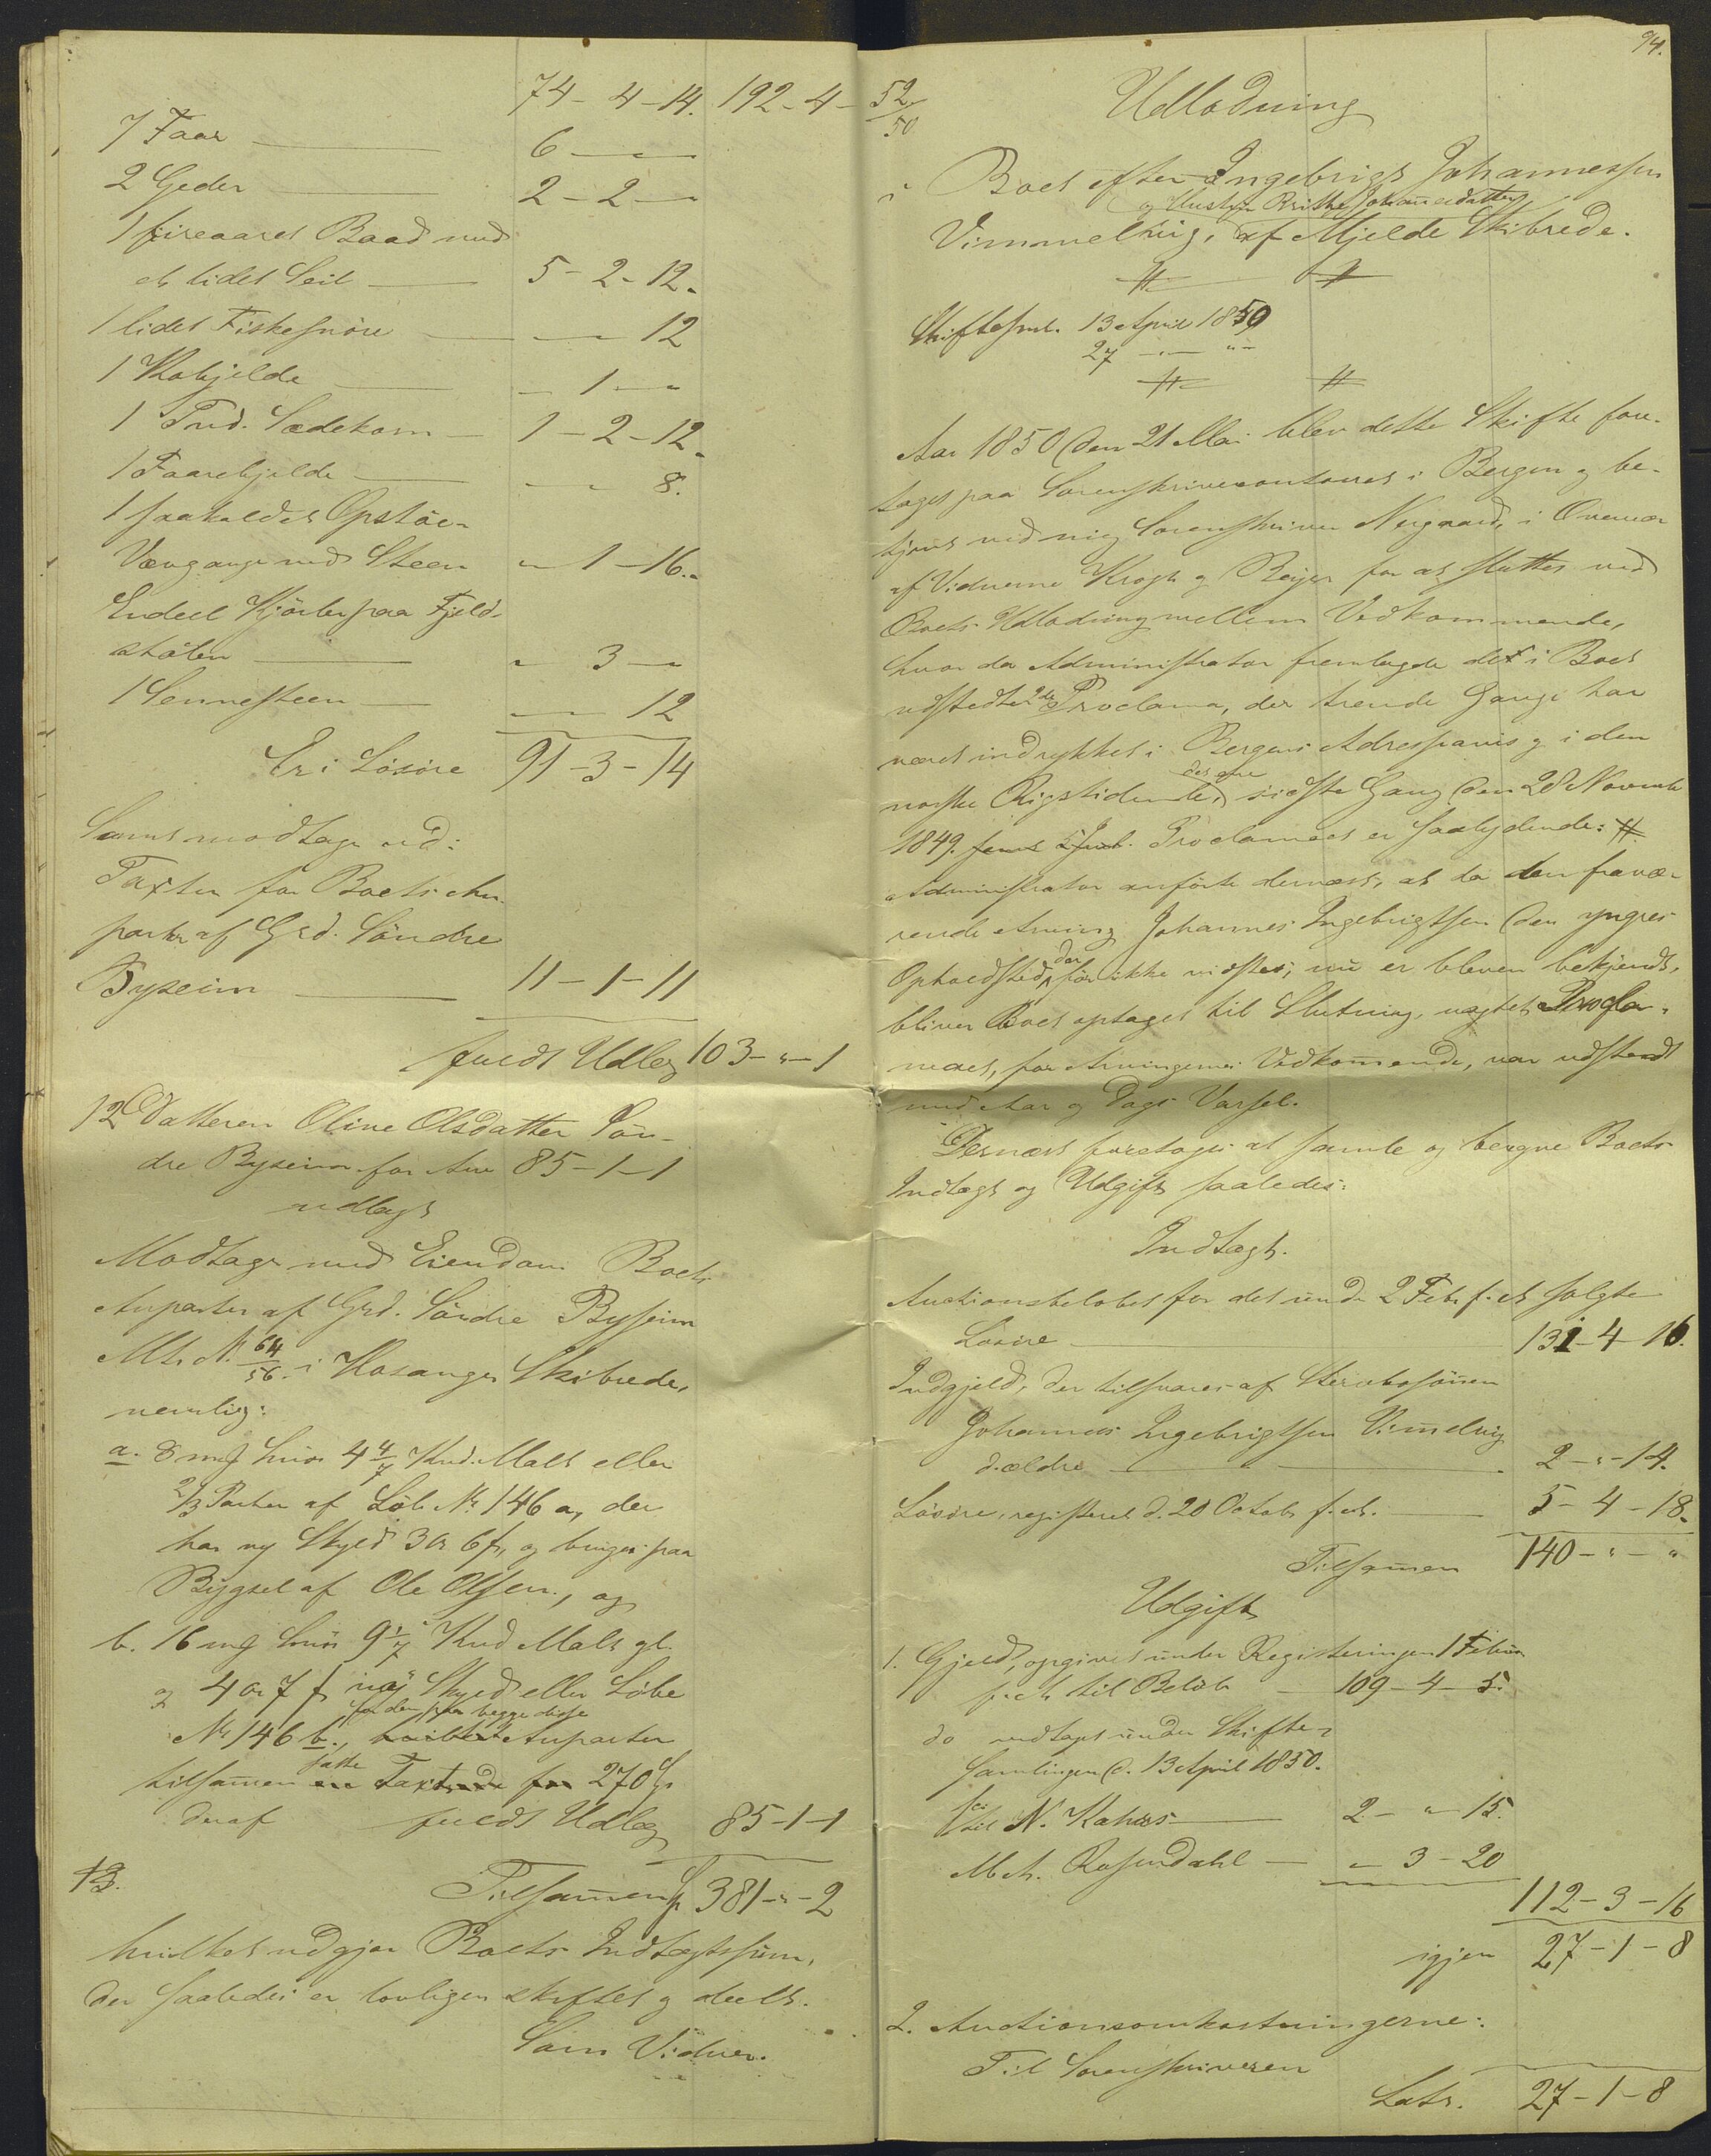 74 - 4 - 14. 192 - 4 -
7 Faar — 6 - " - "
2 Geder — 2 - 2 - "
1 fireaaret Baad med
et lidet Seil — 5 - 2 - 12.
1 lidet Fiskesnöre — " - " - 12
1 Kobjelde — " - 1 - "
1 Tnd. Sædekorn — 1 - 2 - 12.
1 Faarebjelde — " - " - 8.
1 saakaldet Opstöe-
Vævgange med Steen " - 1 - 16.
Endeel Kjörler paa Fjeld-
stölen — " - 3 - "
1 Sennesteen — " - " - 12
Er i Lösöre 91 - 3 - 14
Samt modtager ved:
Taxten for Boets An-
parter af Grd. Söndre
Byseim — 11 - 1 - 11
fuldt Udlæg 103 - " - 1
12 Datteren Oline Olsdatter Sön-
dre Byseim for Arv 85 - 1 - 1
udlagt
Modtager med Eiendom Boets
Anparter af Grd. Söndre Byseim
Mt. N. 64/56 i Hosanger Skibrede,
nemlig:
a. 8 mg Smör 4 4/7 Knd. Malt eller
2/3 Parter af Löb No 146 a, der
har ny Skyld 3 Ort 6 s, og bruges paa
Bygsel af Ole Olsen, og
b. 16 mg Smör 9 1/7 Knd Malt gl.
og 4 ort 7 s ny Skyld eller Löbe
No 146 b., for den paa begge disse Anparter
tilsammen satte Taxt 270 Sp
deraf fuldt Udlæg 85 - 1 - 1
13.
Tilsammen Sp 381 - " - 2
hvilket udgjør Boets Indtægtssum,
der saaledes er lovligen skiftet og deelt.
Som Vidner.
94.
52/50
Udlodning
i Boet efter Ingebrigt Johannessen
og Hustru Brithe Johannesdatter
Vimmelvig, af Mjelde Skibrede.
Skiftesml. 13 April 1850
27 — " —
Aar 1850 den 21 Mai blev dette Skifte fore-
taget paa Sorenskrivercontoret i Bergen og be-
tjent ved mig Sorenskriver Nergaard, i Overvær
af Vidnerne Krogh og Beyer for at sluttes ved
Boets Udlodning mellem Vedkommende,
hvor da Administrator fremlagde det i Boet
udstedte Proclama, der trende Gange har
været indrykket i Bergens Adresseavis og i den
norske Rigstidende, sidste Gang den 28 Novembr
1849. Proclamaet er saalydende:
Administrator anförte dernæst, at da den fravæ-
rende Arving Johannes Ingebrigtsen den yngres
Opholdsted, der för ikke vidstes, nu er bleven bekjendt,
bliver Boet optaget til Slutning, uagtet Procla-
maet, for Arvingernes Vedkommende, var udstedt
med Aar og Dags Varsel.
Dernæst foretoges at samle og beregne Boets
Indtægt og Udgift saaledes:
Indtægt.
Auctionsbelöbet for det under 2 Febr. f. A. solgte
Lösöre — 131 - 4 - 16.
Indgjeld, der tilsvares af Stervbosönnen
Johannes Ingebrigtsen Vimelvig
d. ældre — 2 - " - 14.
Lösöre, registeret d. 20 Octobr f. A. — 5 - 4 - 18.
Tilsammen 140 - " - "
Udgift
1. Gjeld, opgivet under Registeringen 1 Februar
f. A. til Belöb — 109 - 4 - 5.
do vedtaget under Skifte-
samlingen d. 13 April 1850.
til N. Kahrs — 2 - " - 15.
M. A. Rosendahl — " - 3 - 20
112 - 3 - 16
igjen 27 - 1 - 8
2. Auctionsomkostningerne:
Til Sorenskriveren
Lats. 27 - 1 - 8